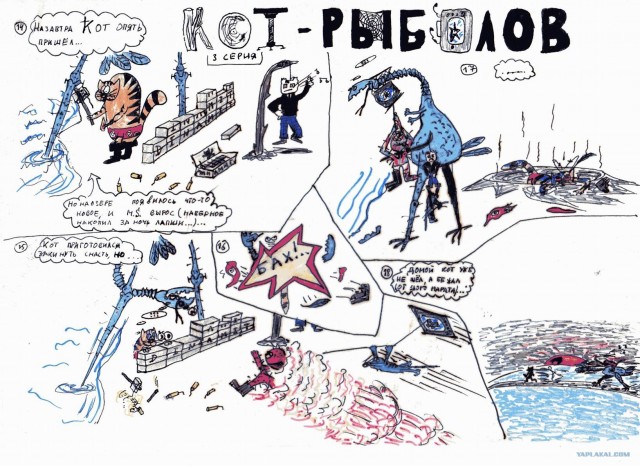 КОТ-РЫБОЛОВ
3 СЕРИЯ
14
НАЗАВТРА КОТ ОПЯТЬ
ПРИШЕЛ...
НО НА ОЗЕРЕ ПОЯВИЛОСЬ ЧТО-ТО
НОВОЕ, И M.S. ВЫРОС (НАВЕРНОЕ
НАКОПИЛ ЗА НОЧЬ ЛАПШИ...)...
15
КОТ ПРИГОТОВИЛСЯ
ЗАКИНУТЬ СНАСТЬ, НО...
16
БАХ!..
17
18
ДОМОЙ КОТ УЖЕ
НЕ ШЁЛ, А ЕХАЛ
YAPLAKAL.COM